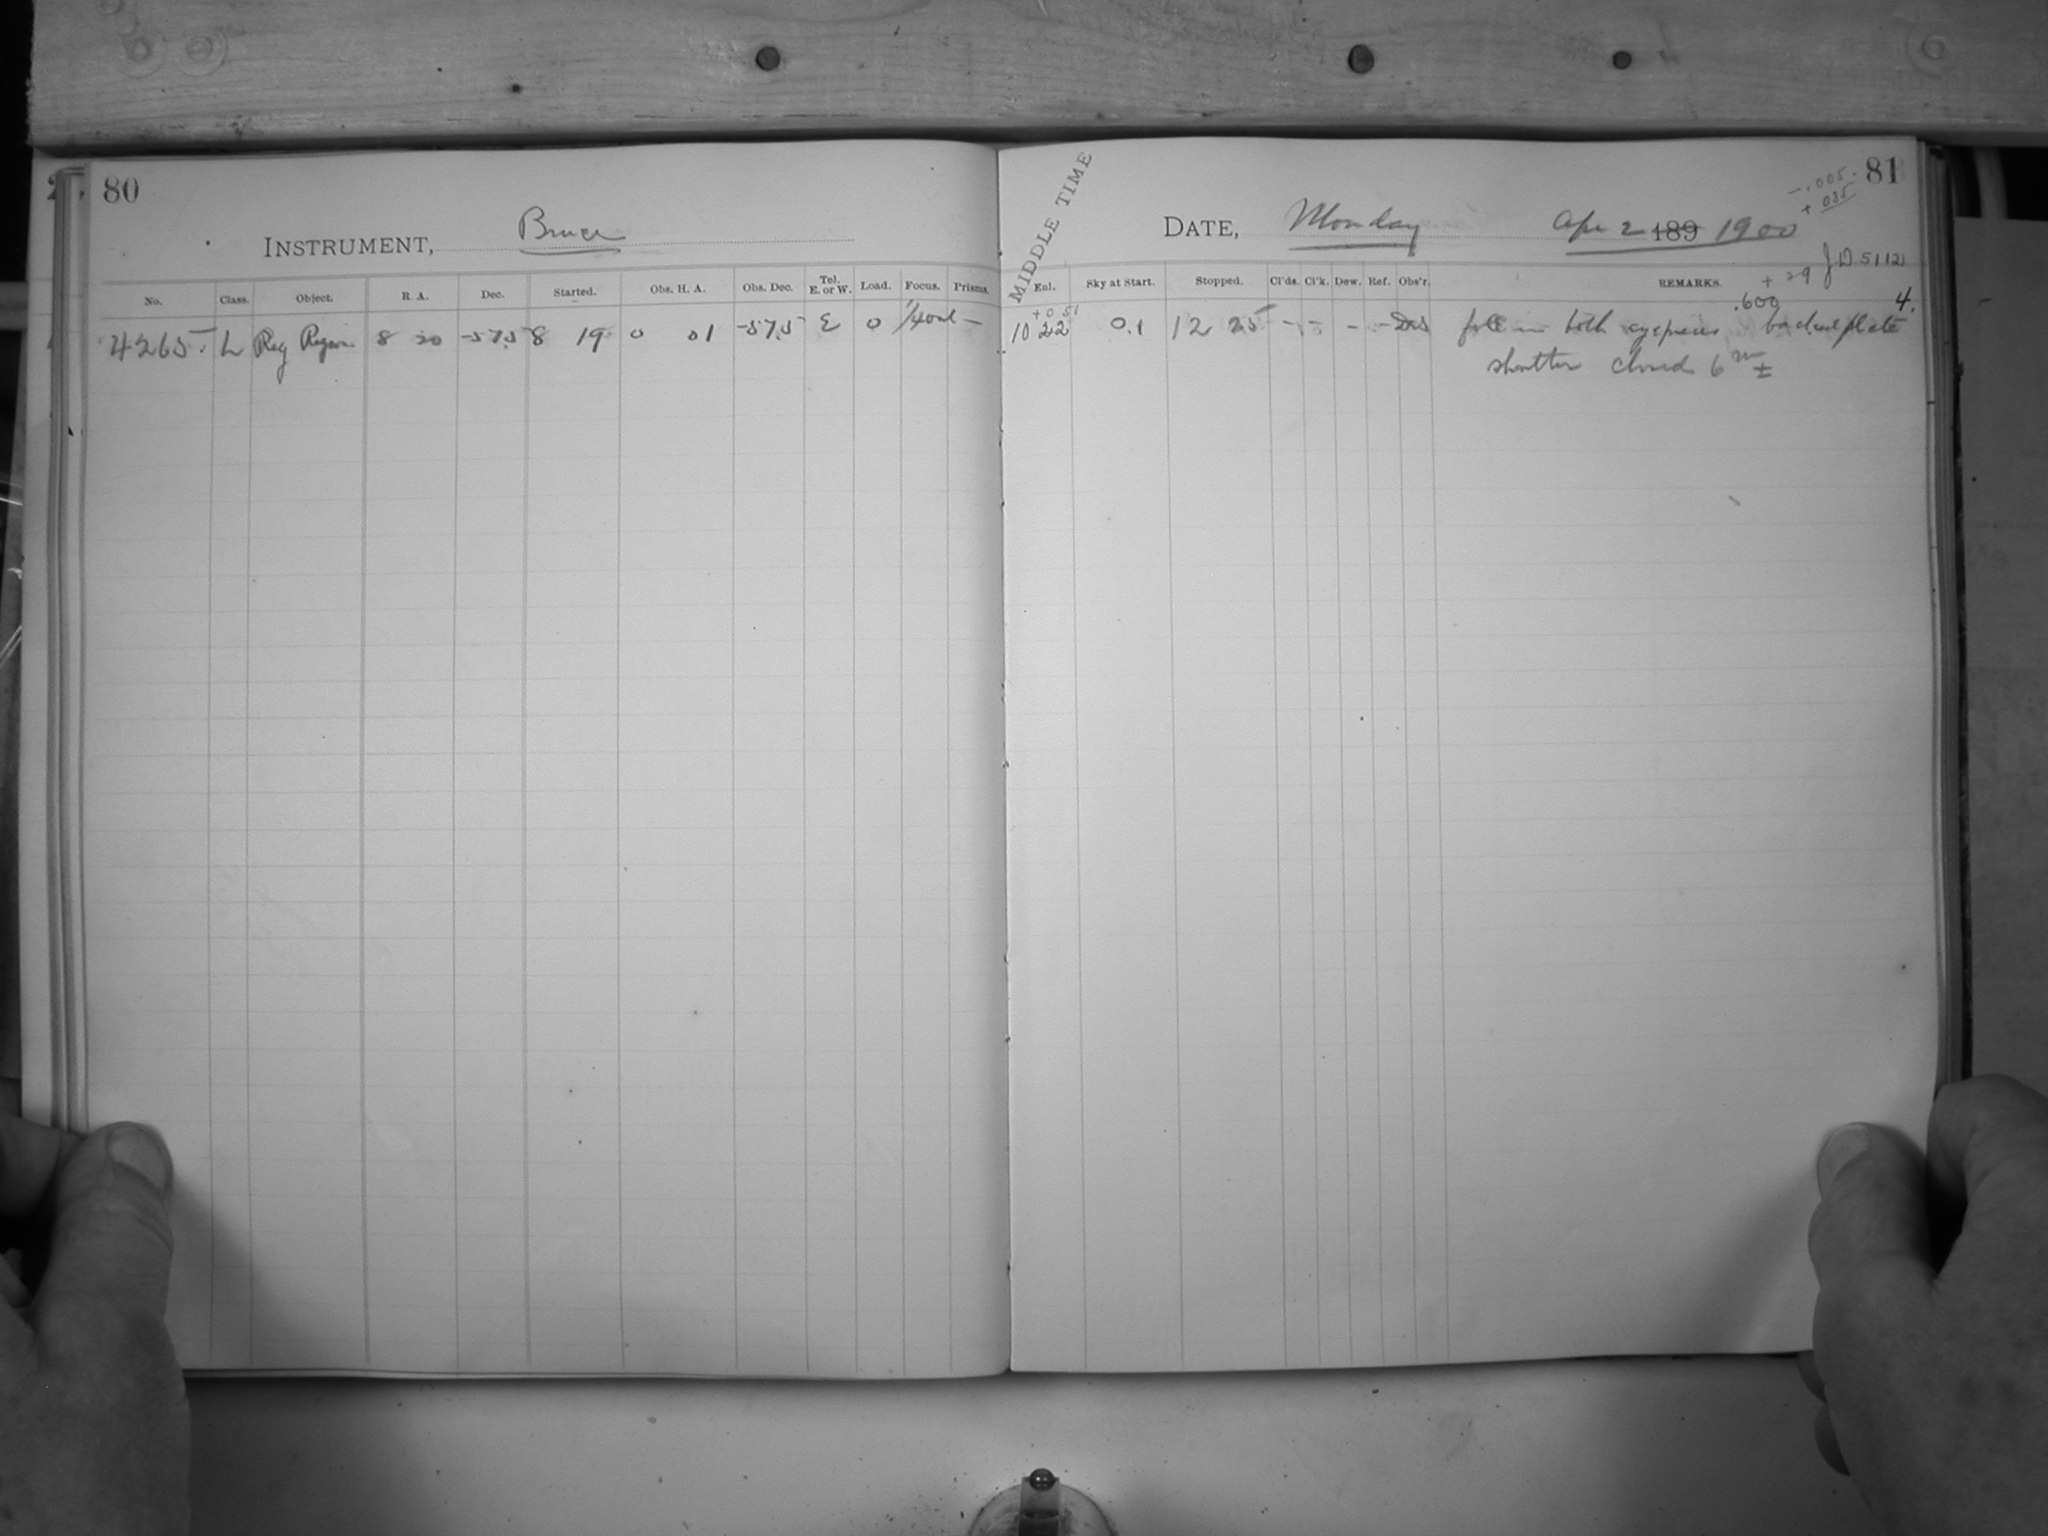 80
INSTRUMENT, Bruce
No. Class. Object. R. A. Dec. Started. Obs. H. A. Obs. Dec. Tel. E. or W. Load. Focus. Prisms.
4265. L Reg Region 8 20 -57.5 8 19 0 01 -57.5 E 0
81
-.005
+ 035
MIDDLE TIME
DATE, Monday Apr 2 189 1900
J.D. 5112
+ 29
Exl. Sky at Start. Stopped. Cl'ds. Cl'k. Dew. Ref. Obs'r. REMARKS.
+0 51 .600 4.
10 22 0.1 12 25 - - - - foll in both eyepieces backed plate
shutter closed 6 m ±